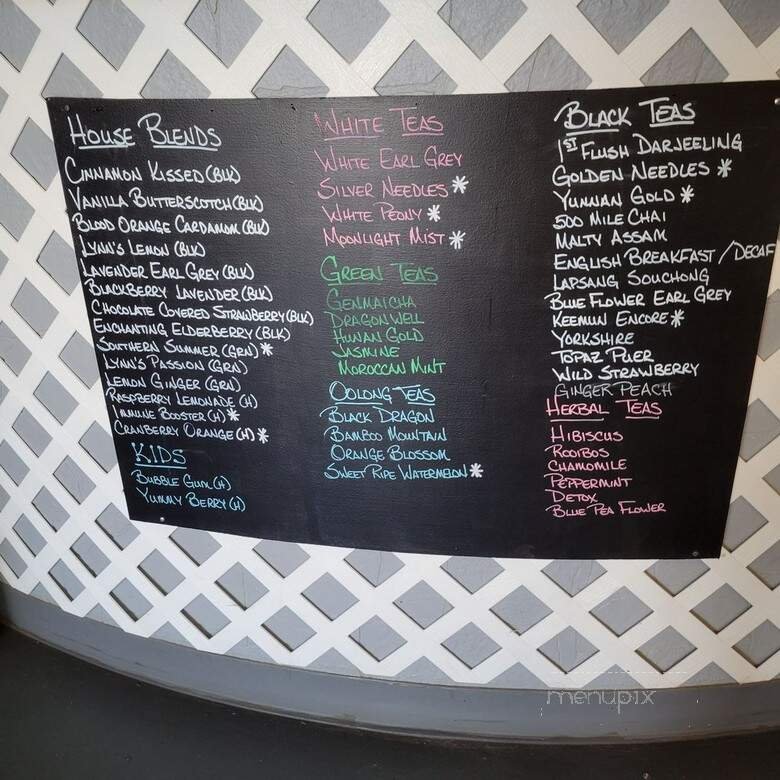 HOUSE BLENDS
CINNAMON KISSED (BLK)
VANILLA BUTTERSCOTCH (BLK)
BLOOD ORANGE CARDAMOM (BLK)
LYNN'S LEMON (BLK)
LAVENDER EARL GREY (BLK)
BLACKBERRY LAVENDER (BLK)
CHOCOLATE COVERED STRAWBERRY (BLK)
ENCHANTING ELDERBERRY (BLK)
SOUTHERN SUMMER (GRN) *
LYNN'S PASSION (GRN)
LEMON GINGER (GRN)
RASPBERRY LEMONADE (H)
IMMUNE BOOSTER (H) *
CRANBERRY ORANGE (H) *
KIDS
BUBBLE GUM (H)
YUMMY BERRY (H)
WHITE TEAS
WHITE EARL GREY
SILVER NEEDLES *
WHITE PEONY *
MOONLIGHT MIST *
GREEN TEAS
GENMAICHA
DRAGONWELL
HUNAN GOLD
JASMINE
MOROCCAN MINT
OOLONG TEAS
BLACK DRAGON
BAMBOO MOUNTAIN
ORANGE BLOSSOM
SWEET RIPE WATERMELON *
BLACK TEAS
1ST FLUSH DARJEELING
GOLDEN NEEDLES *
YUNNAN GOLD *
500 MILE CHAI
MALTY ASSAM
ENGLISH BREAKFAST / DECAF
LAPSANG SOUCHONG
BLUE FLOWER EARL GREY
KEEMUN ENCORE *
YORKSHIRE
TOPAZ PUER
WILD STRAWBERRY
GINGER PEACH
HERBAL TEAS
HIBISCUS
ROOIBOS
CHAMOMILE
PEPPERMINT
DETOX
BLUE PEA FLOWER
menupix